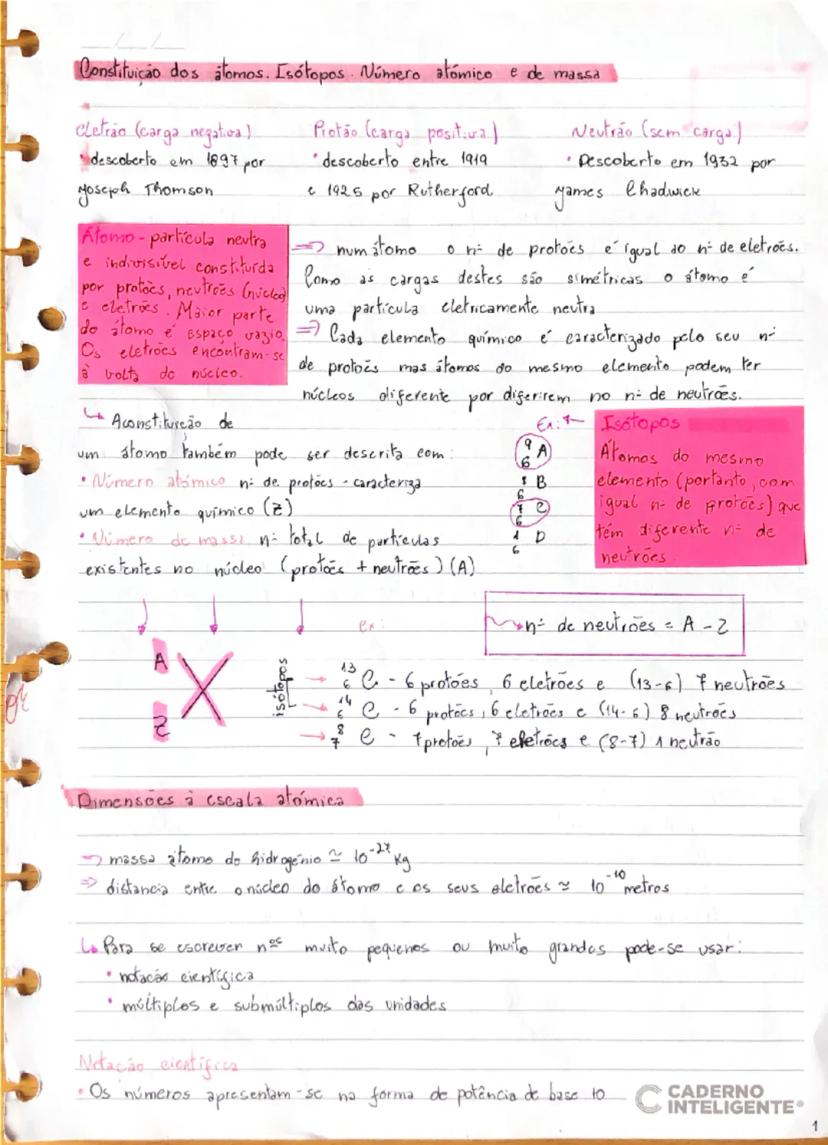 Constituição dos átomos. Isótopos. Número atómico e de massa
Eletrão (carga negativa)
• descoberto em 1897 por
Joseph Thomson
Protão (carga positiva)
• descoberto entre 1919
e 1925 por Rutherford
Neutrão (sem carga)
• Descoberto em 1932 por
James Chadwick
Átomo - partícula neutra
e indivisível constituída
por protões, neutrões (núcleo)
e eletrões. Maior parte
do átomo é espaço vazio.
Os eletrões encontram-se
à volta do núcleo.
⇒ num átomo o nº de protões é igual ao nº de eletrões.
Como as cargas destes são simétricas o átomo é
uma partícula eletricamente neutra
⇒ Cada elemento químico é caracterizado pelo seu nº
de protões mas átomos do mesmo elemento podem ter
núcleos diferente por diferirem no nº de neutrões.
↳ A constituição de
um átomo também pode ser descrita com:
• Número atómico nº de protões - caracteriza
um elemento químico (Z)
• Número de massa nº total de partículas
existentes no núcleo (protões + neutrões) (A)
Ex:
9 6 A
8 6 B
7 6 C
1 6 D
Isótopos
Átomos do mesmo
elemento (portanto, com
igual nº de protões) que
têm diferente nº de
neutrões.
A
Z
X
ex:
nº de neutrões = A - Z
isótopos
→ 13 6 C - 6 protões, 6 eletrões e (13-6) 7 neutrões
→ 14 6 C - 6 protões, 6 eletrões e (14-6) 8 neutrões
→ 8 7 C - 7 protões, 7 eletrões e (8-7) 1 neutrão
Dimensões à escala atómica
⇒ massa átomo do hidrogénio ≃ 10⁻²⁷ kg
⇒ distancia entre o núcleo do átomo e os seus eletrões ≃ 10⁻¹⁰ metros
↳ Para se escrever nºs muito pequenos ou muito grandes pode-se usar:
• notação científica
• múltiplos e submúltiplos das unidades
Notação científica
• Os números apresentam-se na forma de potência de base 10
CADERNO
INTELIGENTE®
1